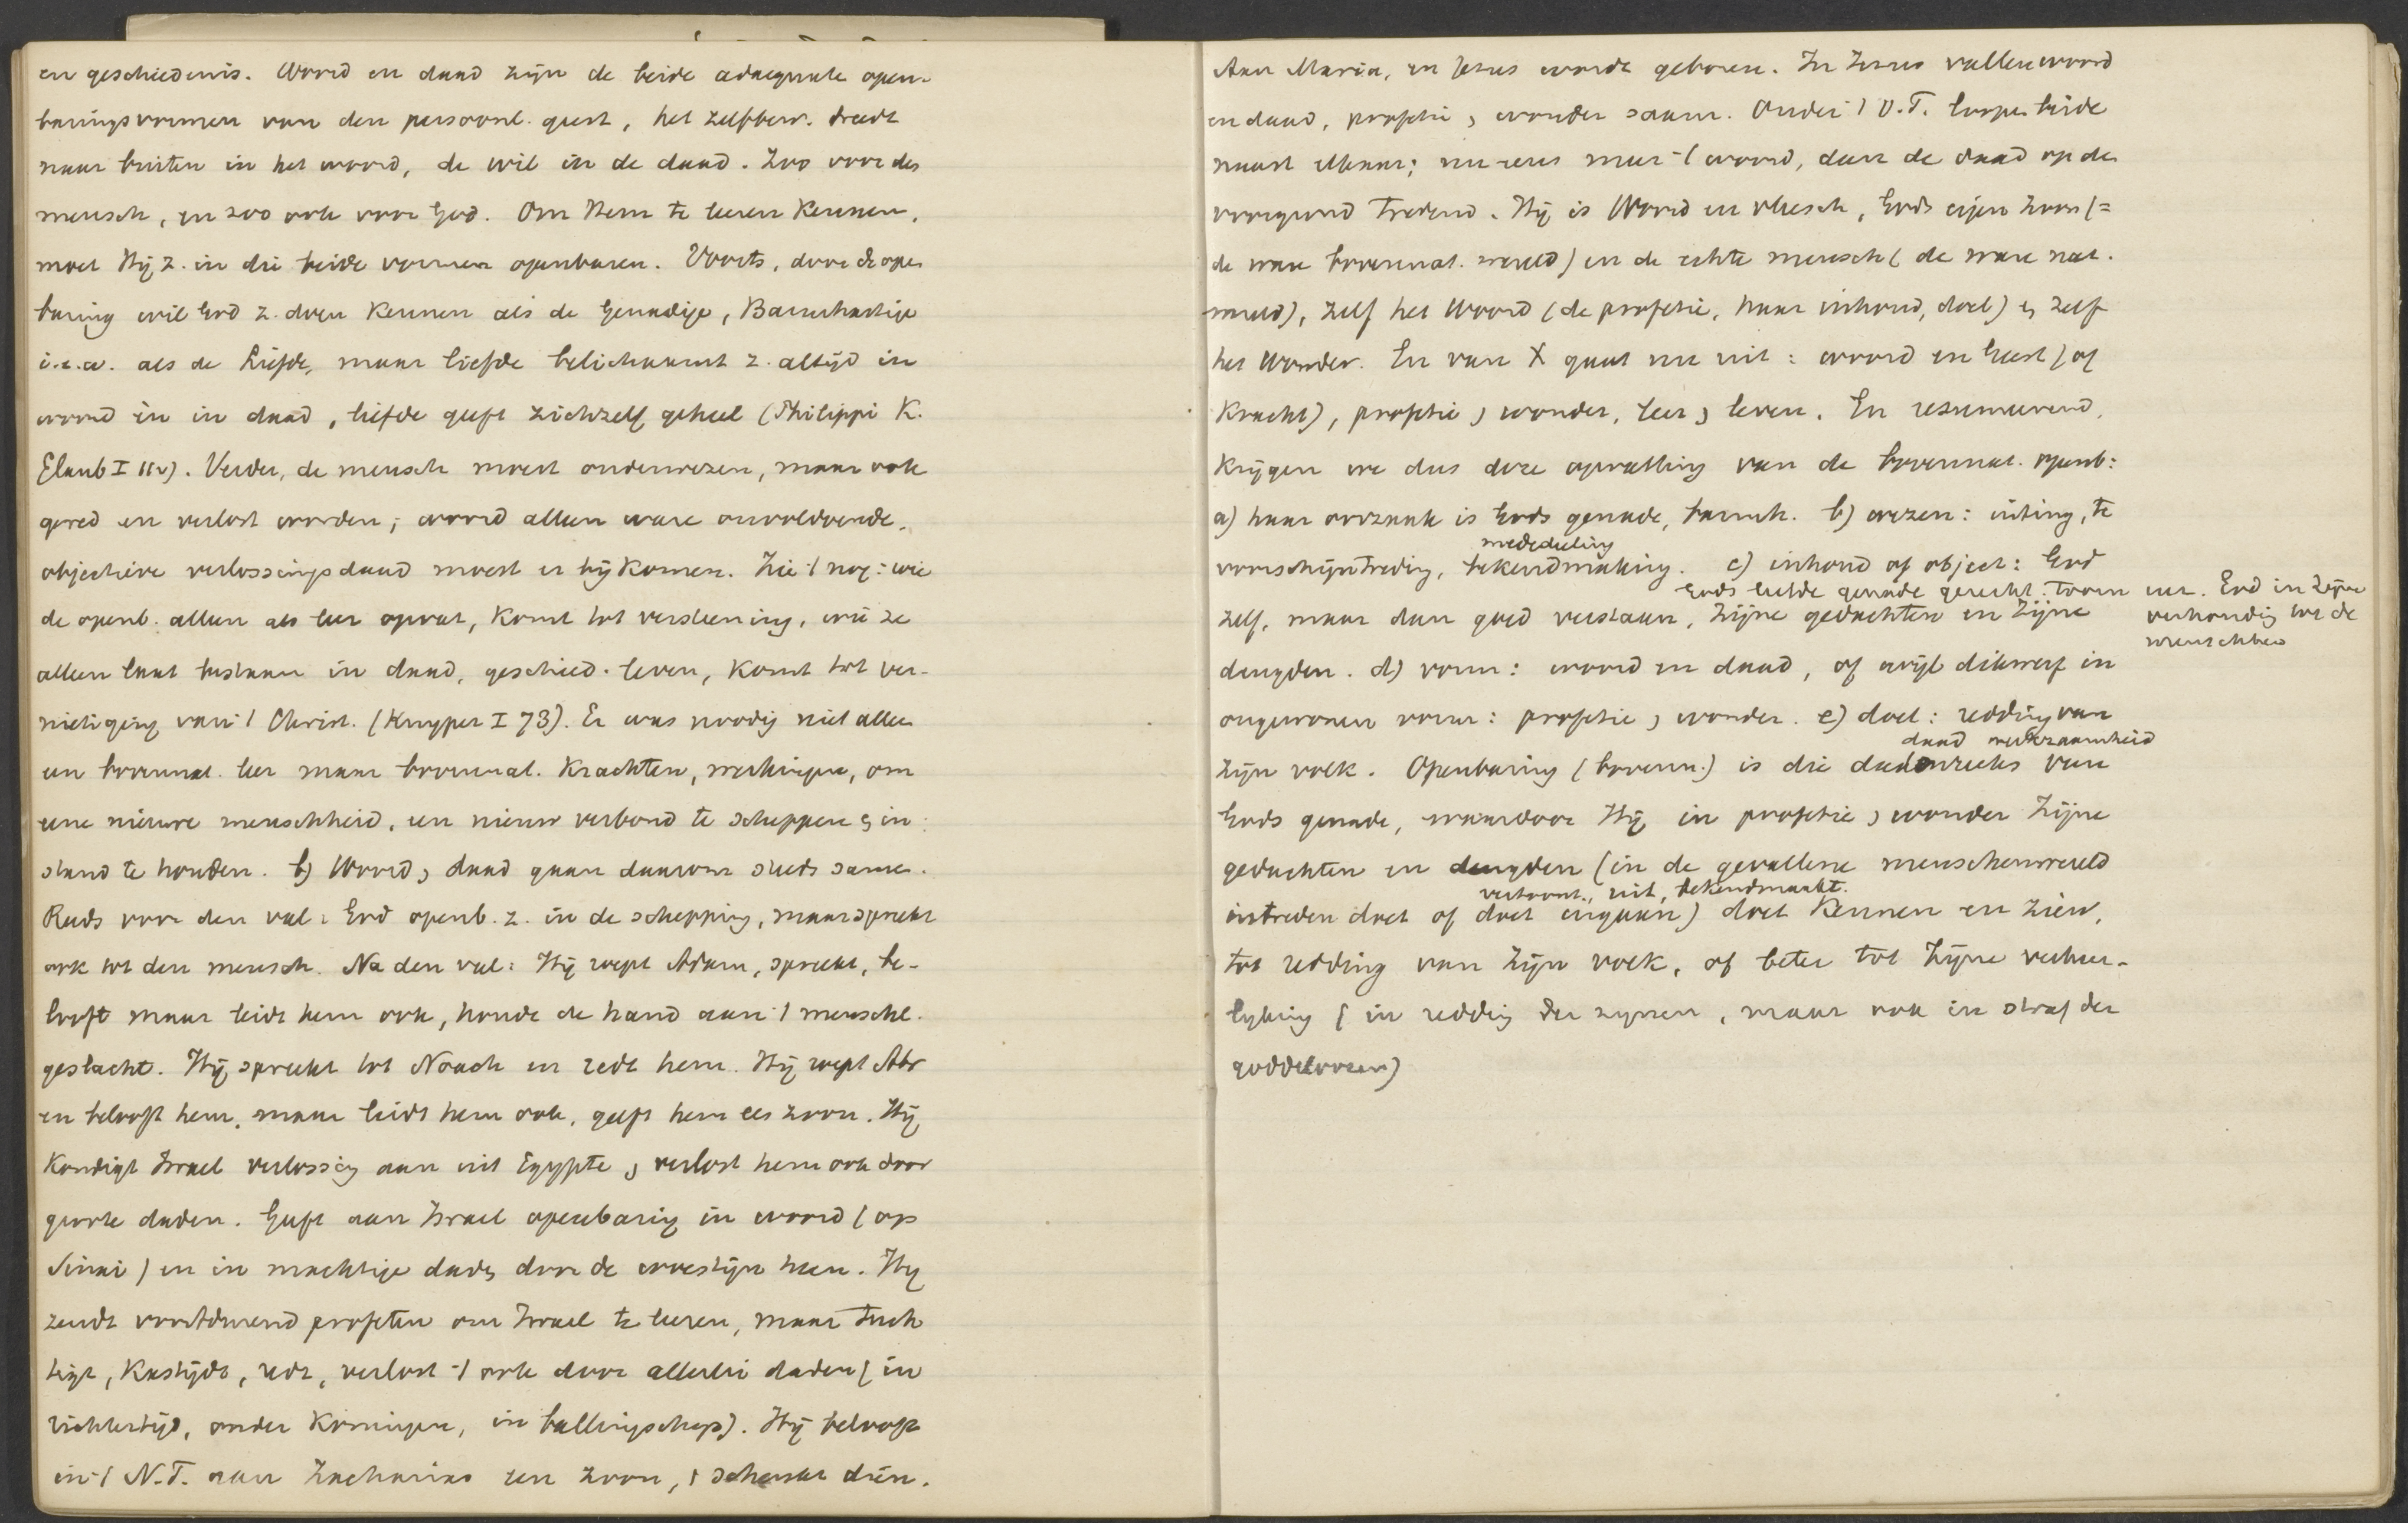 en geschiedenis. Woord en daad zijn de beide adaequate open-
baringsvormen van den persoonl. geest, het zelfbew. treedt
naar buiten in het woord, de wil in de daad. Zoo voor den
mensch, en zoo ook voor God. Om Hem te leeren kennen,
moet Hij z. in die beide vormen openbaren. Voorts, door de open
baring wil God z. doen kennen als de Genadige, Barmhartige
i.e.w. als de Liefde, maar liefde belichaamt z. altijd in
woord èn in daad, liefde geeft zichzelf geheel (Philippi K.
Glaub I 112). Verder, de mensch moest onderwezen, maar ook
gered en verlost worden; woord alleen ware onvoldoende,
objectieve verlossingsdaad moest er bij komen. Zie 't nog: wie
de openb. alleen als leer opvat, komt tot versteening, wie ze
alleen laat bestaan in daad, geschied. leven, komt tot ver-
nietiging van 't Christ. (Kuyper I 73). Er was noodig niet alleen
een bovennat. leer maar bovennat. krachten, werkingen, om
eene nieuwe menschheid, een nieuw verbond te scheppen en in
stand te houden. b) Woord en daad gaan daarom steeds samen.
Reeds voor den val: God openb. z. in de schepping, maar spreekt
ook tot den mensch. Na den val: Hij roept Adam, spreekt, be-
looft maar leidt hem ook, houdt de hand aan 't menschel.
geslacht. Hij spreekt tot Noach en redt hem. Hij roept Abr
en belooft hem, maar leidt hem ook, geeft hem een zoon. Hij
kondigt Israel verlossing aan uit Egypte en verlost hem ook door
groote daden. Geeft aan Israel openbaring in woord (op
Sinai) en in machtige daden door de woestijn heen. Hij
zendt voortdurend profeten om Israel te leeren, maar tuch
tigt, kastijdt, redt, verlost 't ook door allerlei daden (in
richtertijd, onder koningen, in ballingschap). Hij belooft
in 't N.T. aan Zacharias een zoon, en schenkt dien.
Aan Maria, en Jezus wordt geboren. In Jezus vallen woord
en daad, profetie en wonder saam. Onder 't O.T. loopen beide
naast elkaar; nu eens meer 't woord, dan de daad op den
voorgrond tredend. Hij is Woord en vleesch, Gods eigen Zoon (=
de ware bovennat. wereld) en de echte mensch (de ware nat.
wereld), zelf het Woord (de profetie, haar inhoud, doel) en zelf
het Wonder. En van X gaat nu uit: woord en Geest (of
kracht), profetie en wonder, leer en leven. En resumeerend,
krijgen we dus deze opvatting van de bovennat. openb:
a) haar oorzaak is Gods genade, barmh. b) wezen: uiting, te
mededeeling
voorschijntreding, bekendmaking. c) inhoud of object: God
Gods liefde genade gerecht. toorn enz. God in Zijne
zelf, maar dan goed verstaan, Zijne gedachten en Zijne
verhouding tot de
menschheid
deugden. d) vorm: woord en daad, of wijl dikwerf in
ongewonen vorm: profetie en wonder. e) doel: redding van
daad werkzaamheid
zijn volk. Openbaring (bovenn.) is die dadenreeks van
Gods genade, waardoor Hij in profetie en wonder Zijne
gedachten en deugden (in de gevallene menschenwereld
vertoont, uit, bekendmaakt.
intreden doet of doet ingaan) doet kennen en zien,
tot redding van Zijn volk, of beter tot Zijne verheer-
lyking (in redding der zynen, maar ook in straf der
goddeloozen)